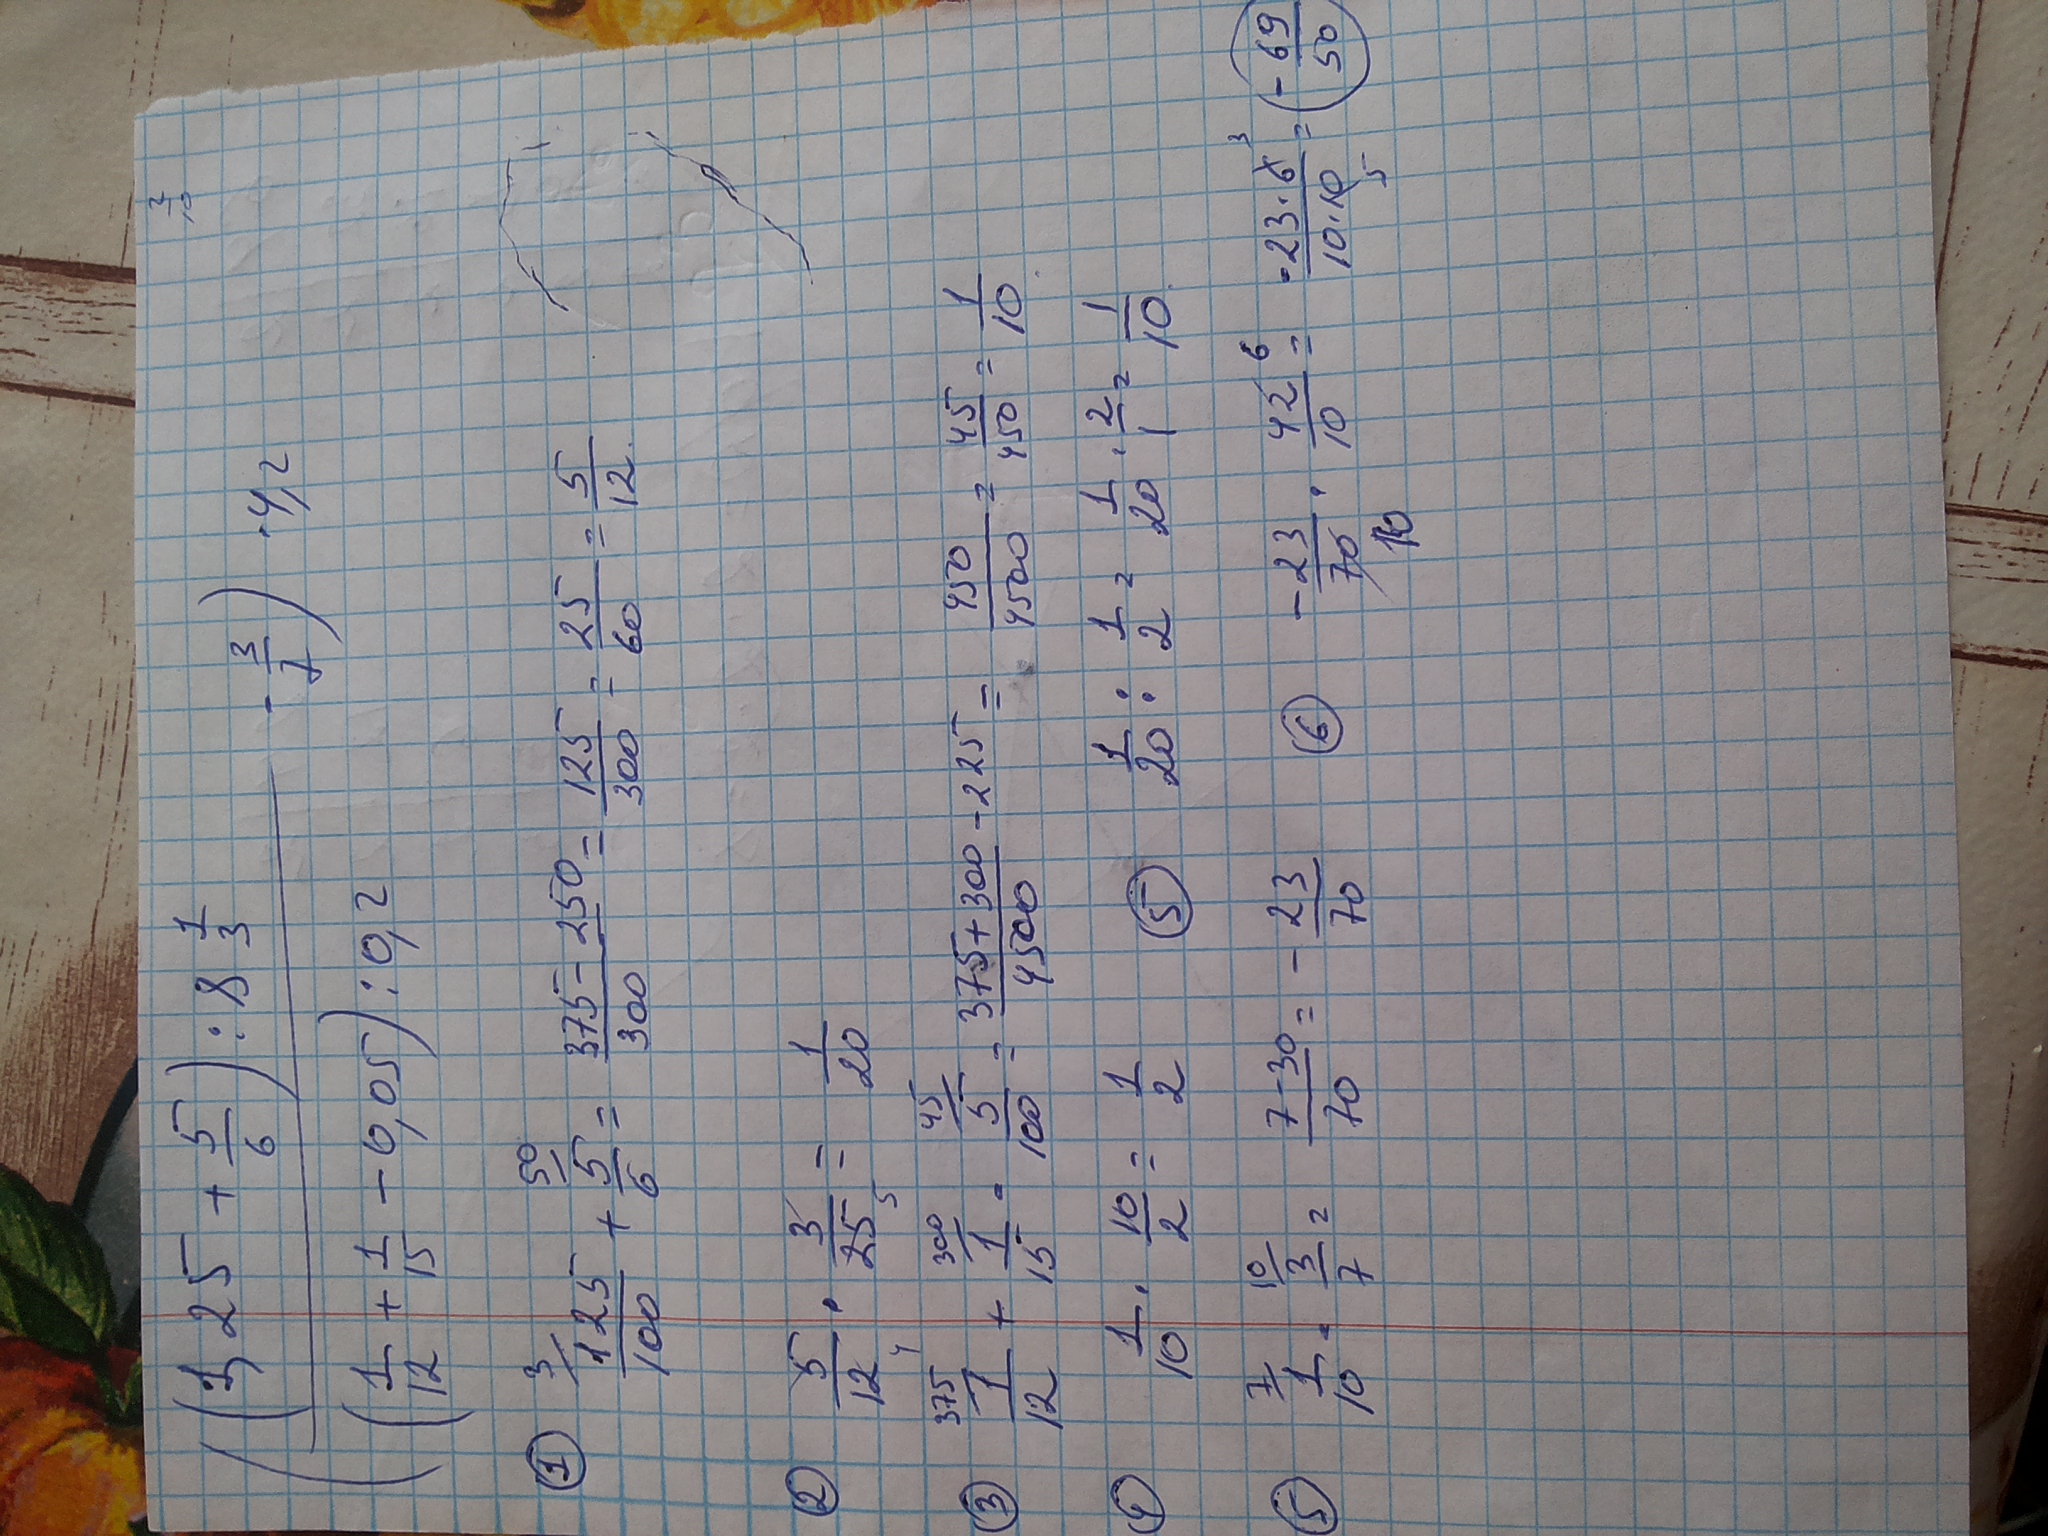 2/10
((1,25 + 5/6) : 8 1/3
- 3/7) · 4,2
(1/12 + 1/15 - 0,05) : 0,2
① 125/100 + 5/6 = 375-250/300 = 125/300 = 25/60 = 5/12
3 50
② 5/12 · 3/25 = 1/20
4 5
③ 1/12 + 1/15 - 5/100 = 375+300-225/4500 = 450/4500 = 45/450 = 1/10
375 300 45
④ 1/10 · 10/2 = 1/2 ⑤ 1/20 : 1/2 = 1/20 · 2/1 = 1/10
⑤ 1/10 - 3/7 = 7-30/70 = - 23/70 ⑥ - 23/70 · 42/10 = - 23·6/10·10 = - 69/50
7 10 10 6 3 5